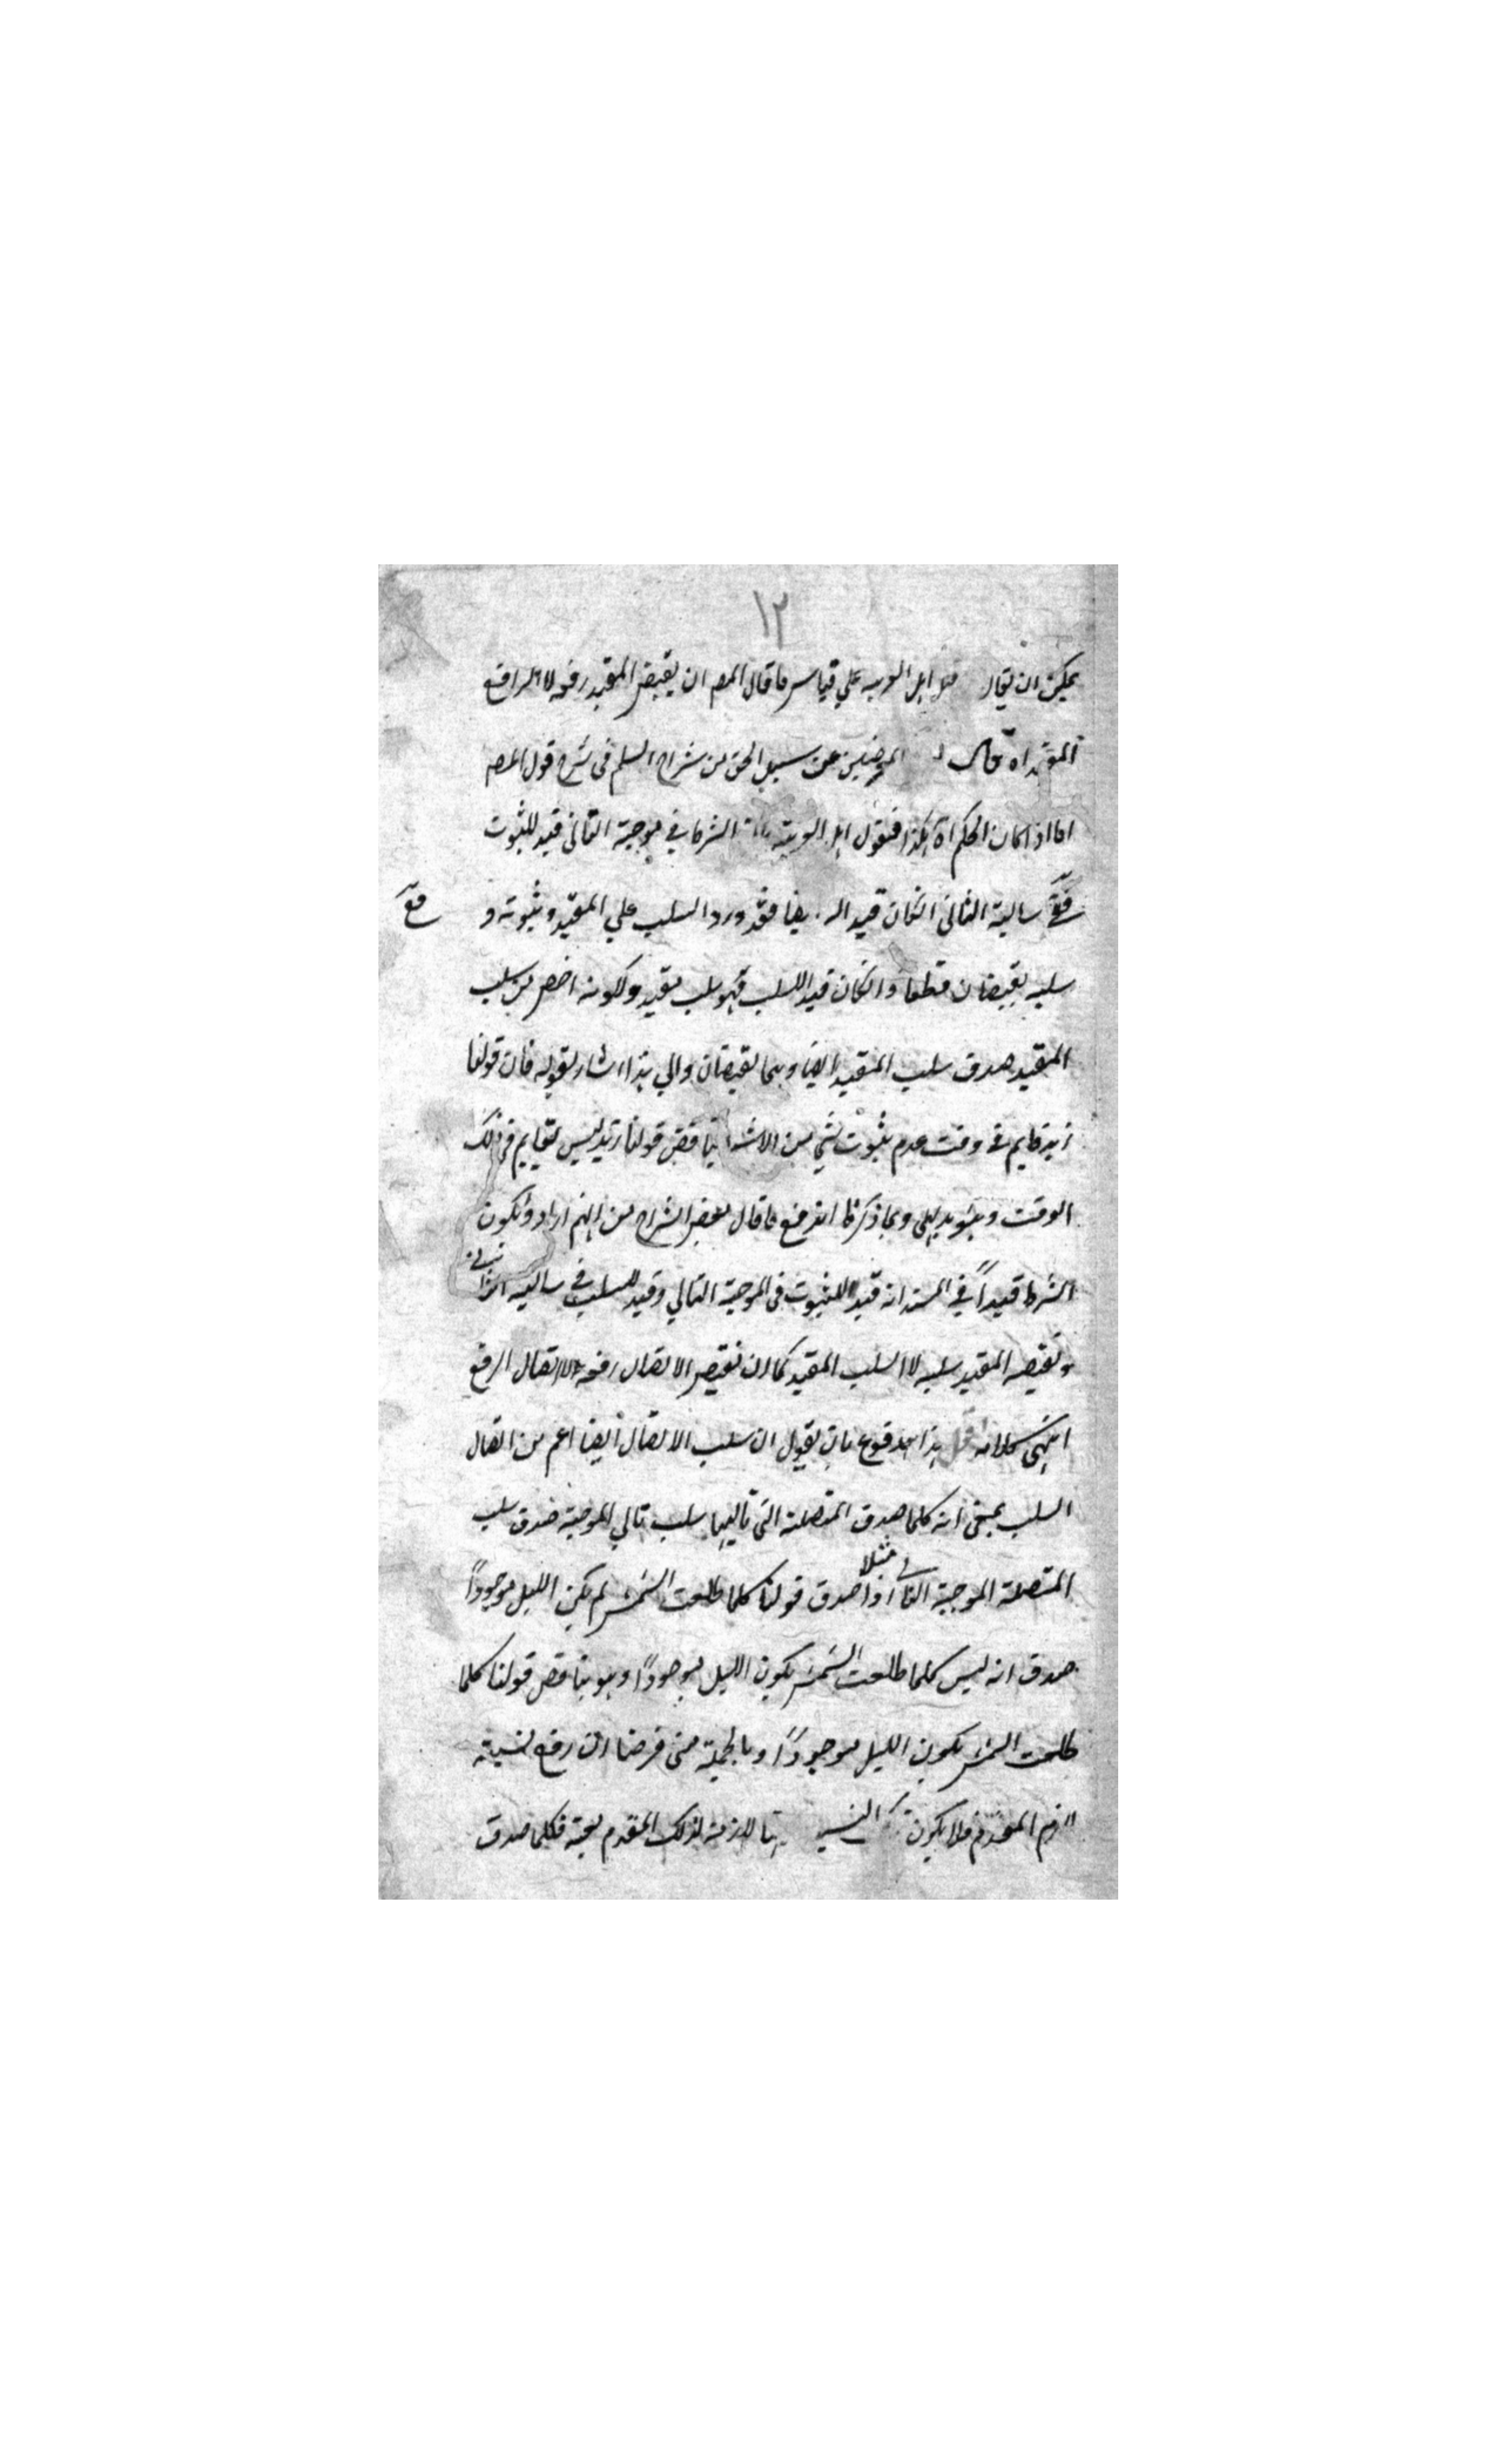 ١٢
يمكن ان يقال اهل العربيه علي قياس ما قال المصـ ان نقيض المقيد رفعه لا الرفع
المقيد اه قال المعرضين عن سبيل الحق من شراح السلم في شرح قول المصـ
اما اذا كان الحكم اه هكذا فنقول اهل العربية الشرط في موجبة التالي قيد للثبوت
ففي سالبة التالي انكان قيد اله ايضا فقد ورد السلب علي المقيد وثبوته و
سلبه نقيضان قطعا وانكان قيد السلب فهو سلب مقيد ولكونه اخص من سلب
المقيد صدق سلب المقيد ايضا وهما نقيضان والي هذا اشار بقوله فان قولنا
زيد قايم في وقت عدم ثبوت شي من الاشياء يناقض قولنا زيد ليس بقايم في ذلك
الوقت وهو بديهي وبما ذكرنا اندفع ما قال بعض الشراح من انهم ارادوا بكون
الشرط قيداً في المسند انه قيد للثبوت في الموجبة التالي وقيد للسلب في سالبه
ونقيض المقيد سلبه لا السلب المقيد كما ان نقيض الاتصال رفعه لا اتصال الرفع
انتهي كلامه هذا مدفوع بان يقول ان سلب الاتصال ايضا اعم من اتصال
السلب بمعنى انه كلما صدق المتصلة التي تاليها سلب تالي الموجبة صدق سلب
المتصلة الموجبة التالي مثلا اذا صدق قولنا كلما طلعت الشمس لم يكن الليل موجوداً
صدق انه ليس كلما طلعت الشمس يكون الليل موجوداً وهو يناقض قولنا كلما
طلعت الشمس يكون الليل موجوداً وبالجملة متى فرضنا ان رفع نسبته
لازم المقدم فلا يكون النسبة لازمة لذلك المقدم فكلما صدق